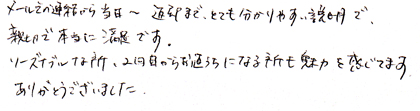 メールでの連絡から当日〜返却まで、とても分かりやすい説明で、
親切で本当に満足です。
リーズナブルな所、2回目からお得になる所も魅力を感じてます。
ありがとうございました。